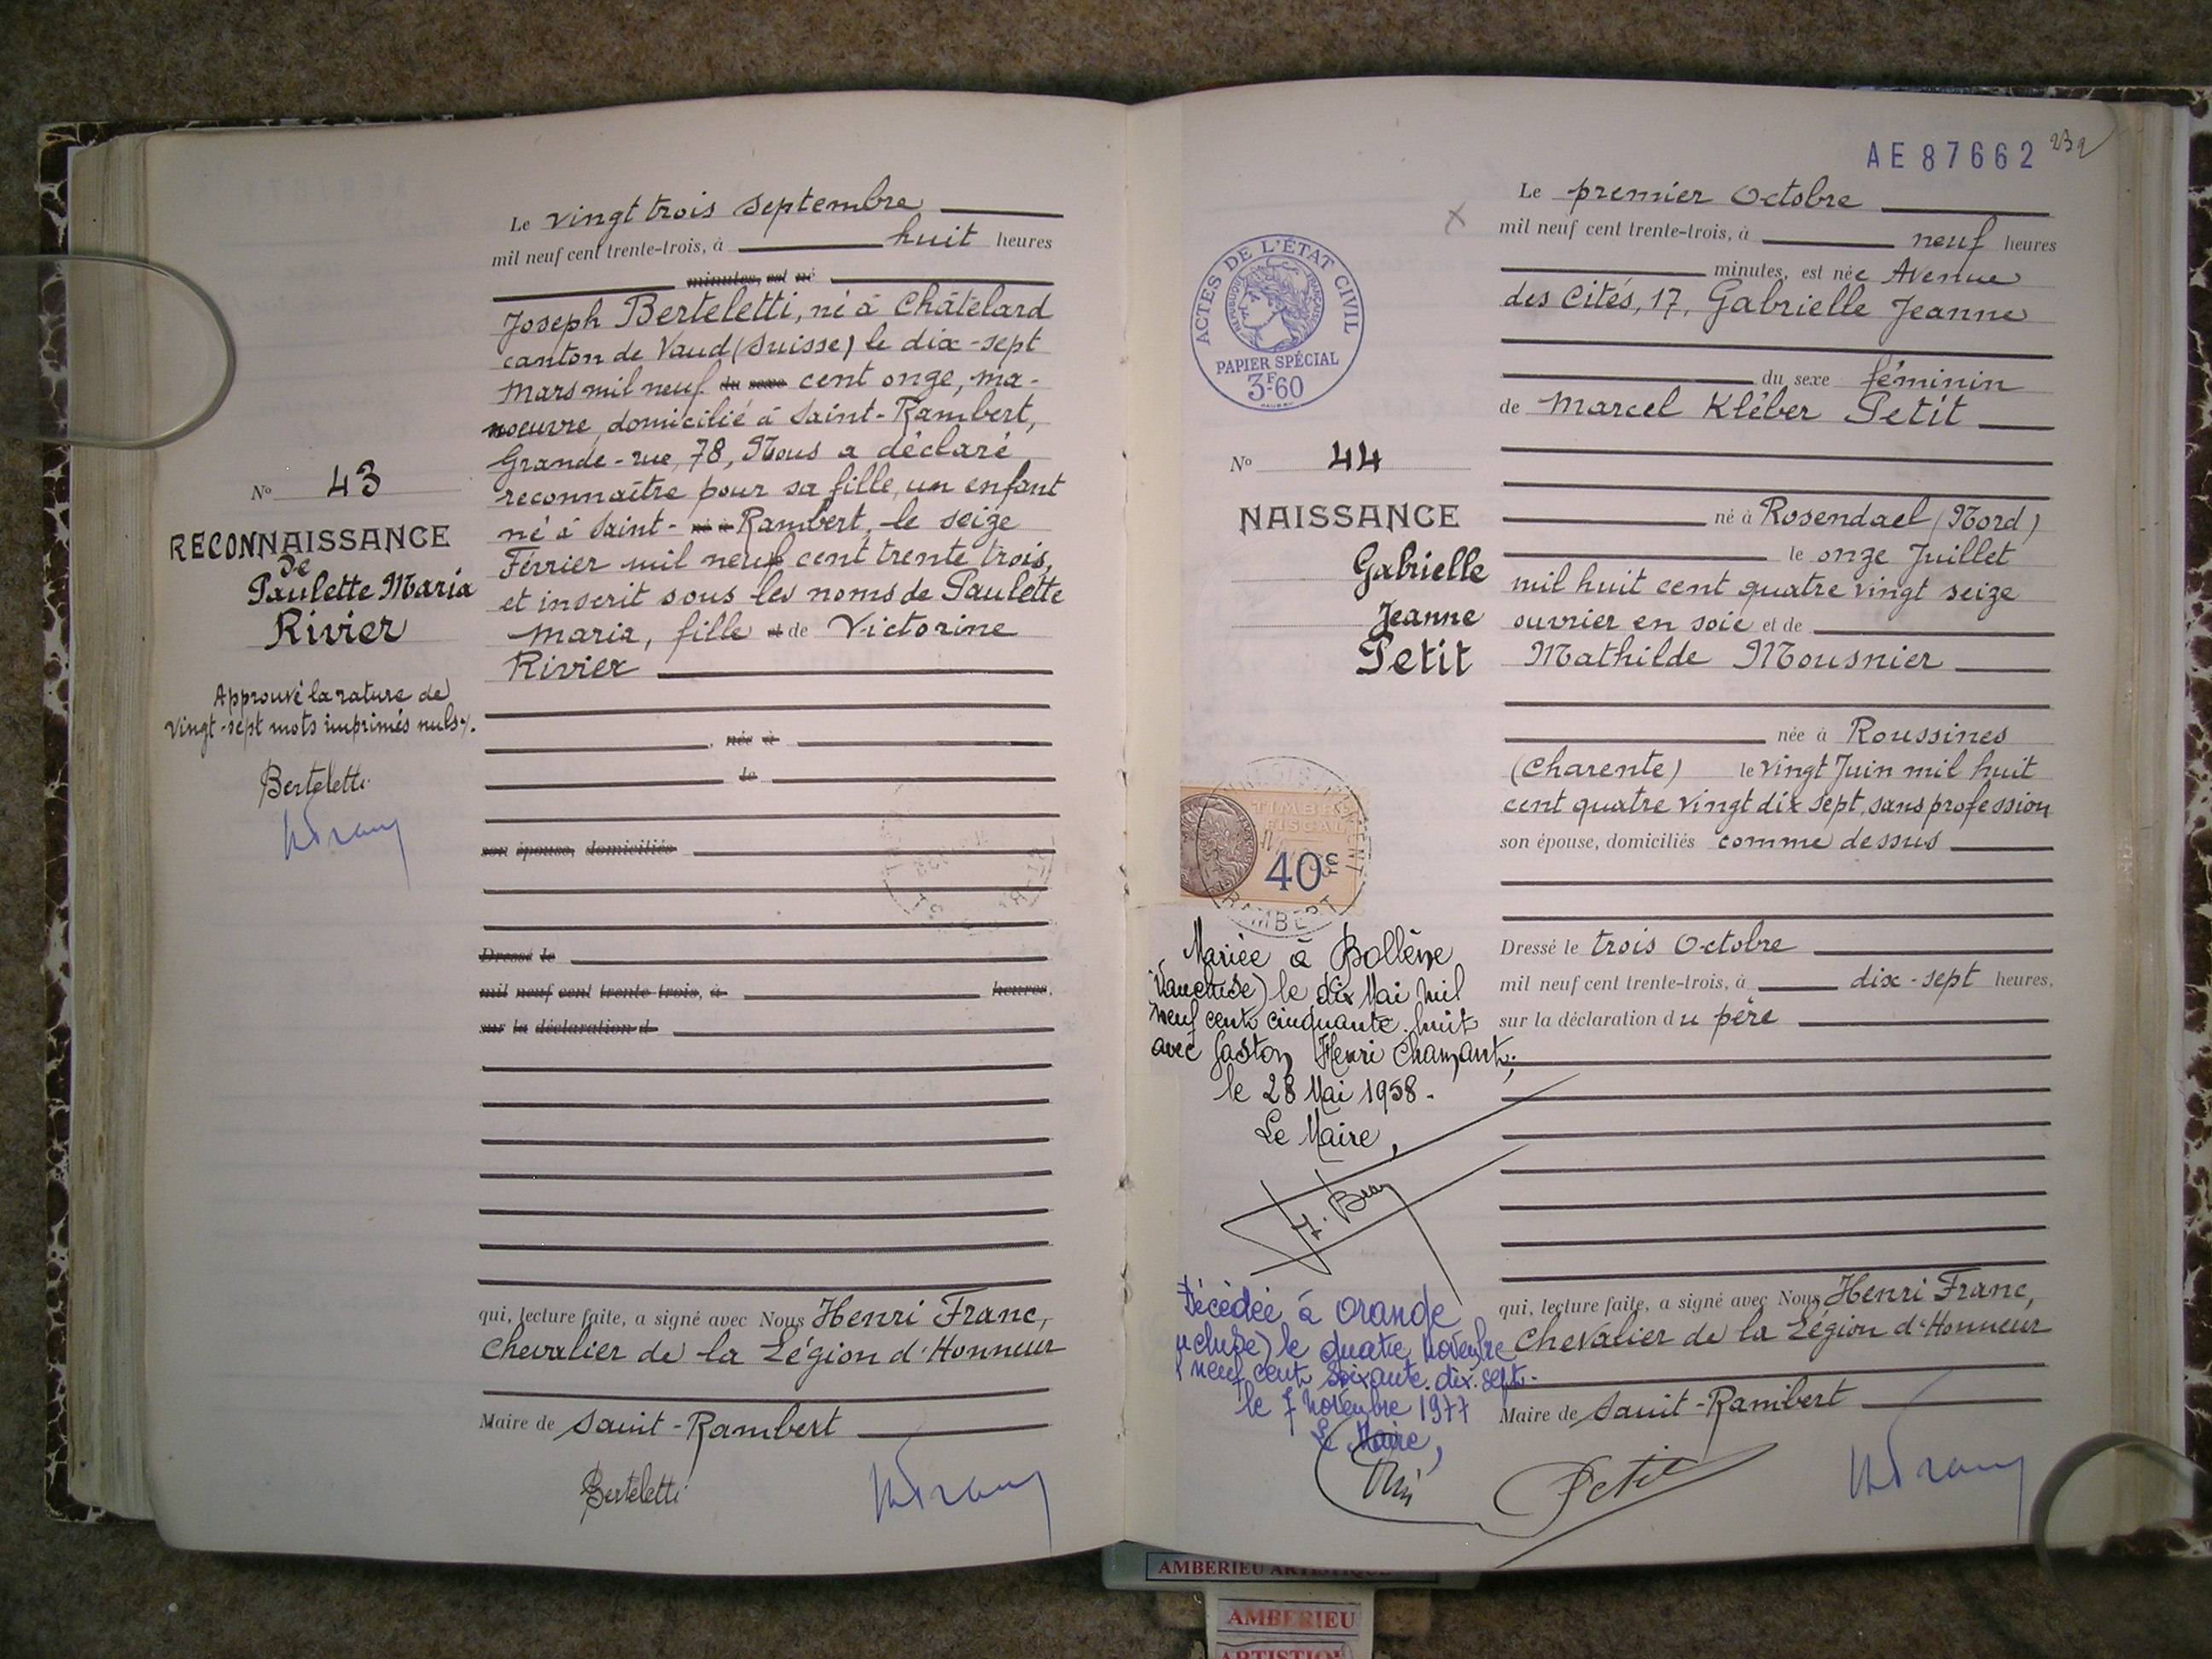 Le vingt trois septembre
mil neuf cent trente-trois, à huit heures
minutes, est né
Joseph Berteletti, né à Châtelard
canton de Vaud (Suisse) le dix-sept
Mars mil neuf du sexe cent onze, ma-
noeuvre, domicilié à Saint-Rambert,
Grande-rue, 78, Nous a déclaré
reconnaître pour sa fille, un enfant
né à Saint- né à Rambert, le seize
Février mil neuf cent trente trois,
et inscrit sous les noms de Paulette
Maria, fille et de Victorine
Rivier
, née à
le
son épouse, domiciliés
Dressé le
mil neuf cent trente-trois, à heures.
sur la déclaration d
qui, lecture faite, a signé avec Nous Henri Franc,
Chevalier de la Légion d'Honneur
Maire de Saint-Rambert
Berteletti
No 43
RECONNAISSANCE
de
Paulette Maria
Rivier
Approuvé la rature de
vingt-sept mots imprimés nuls.
Berteletti
AE 87662
232
Le premier Octobre
mil neuf cent trente-trois, à neuf heures
minutes, est née Avenue
des Cités, 17, Gabrielle Jeanne
du sexe féminin
de Marcel Kléber Petit
né à Rosendael (Nord)
le onze Juillet
mil huit cent quatre vingt seize
ouvrier en soie et de
Mathilde Mousnier
née à Roussines
(Charente) le vingt Juin mil huit
cent quatre vingt dix sept, sans profession
son épouse, domiciliés comme dessus
Dressé le trois Octobre
mil neuf cent trente-trois, à dix-sept heures,
sur la déclaration du père
qui, lecture faite, a signé avec Nous Henri Franc,
Chevalier de la Légion d'Honneur
Maire de Saint-Rambert
Petit
ACTES DE L'ÉTAT CIVIL
RÉPUBLIQUE FRANÇAISE
PAPIER SPÉCIAL
3F.60
No 44
NAISSANCE
Gabrielle
Jeanne
Petit
TIMBRE
FISCAL
40c
RAMBERT
Mariée à Bollène
Vaucluse) le dix Mai mil
neuf cent cinquante huit
avec Gaston Henri Chamant;
le 28 Mai 1958.
Le Maire,
Décédée à Orange
ucluse) le quatre Novembre
l neuf cent soixante.dix.sept.
le 7 Novembre 1977
Le Maire,
AMBERIEU ARTISTIQUE
AMBERIEU
ARTISTIQUE